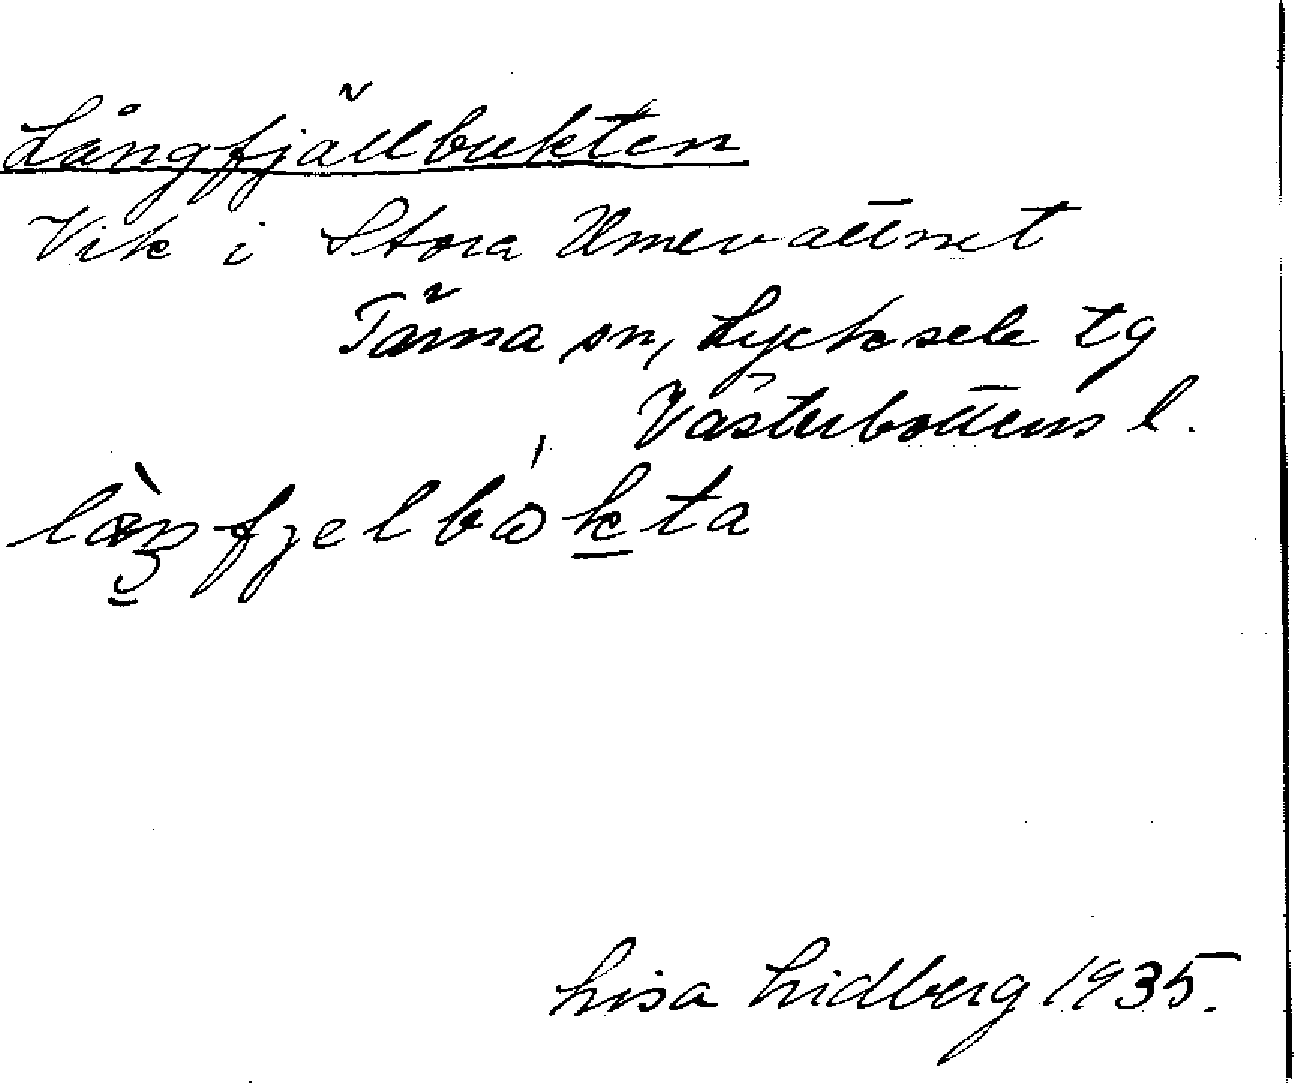 Långfjällbukten
Vik i Stora Umevattnet
Tärna sn, Lycksele tg
Västerbottens l.
Lisa Lidberg 1935.